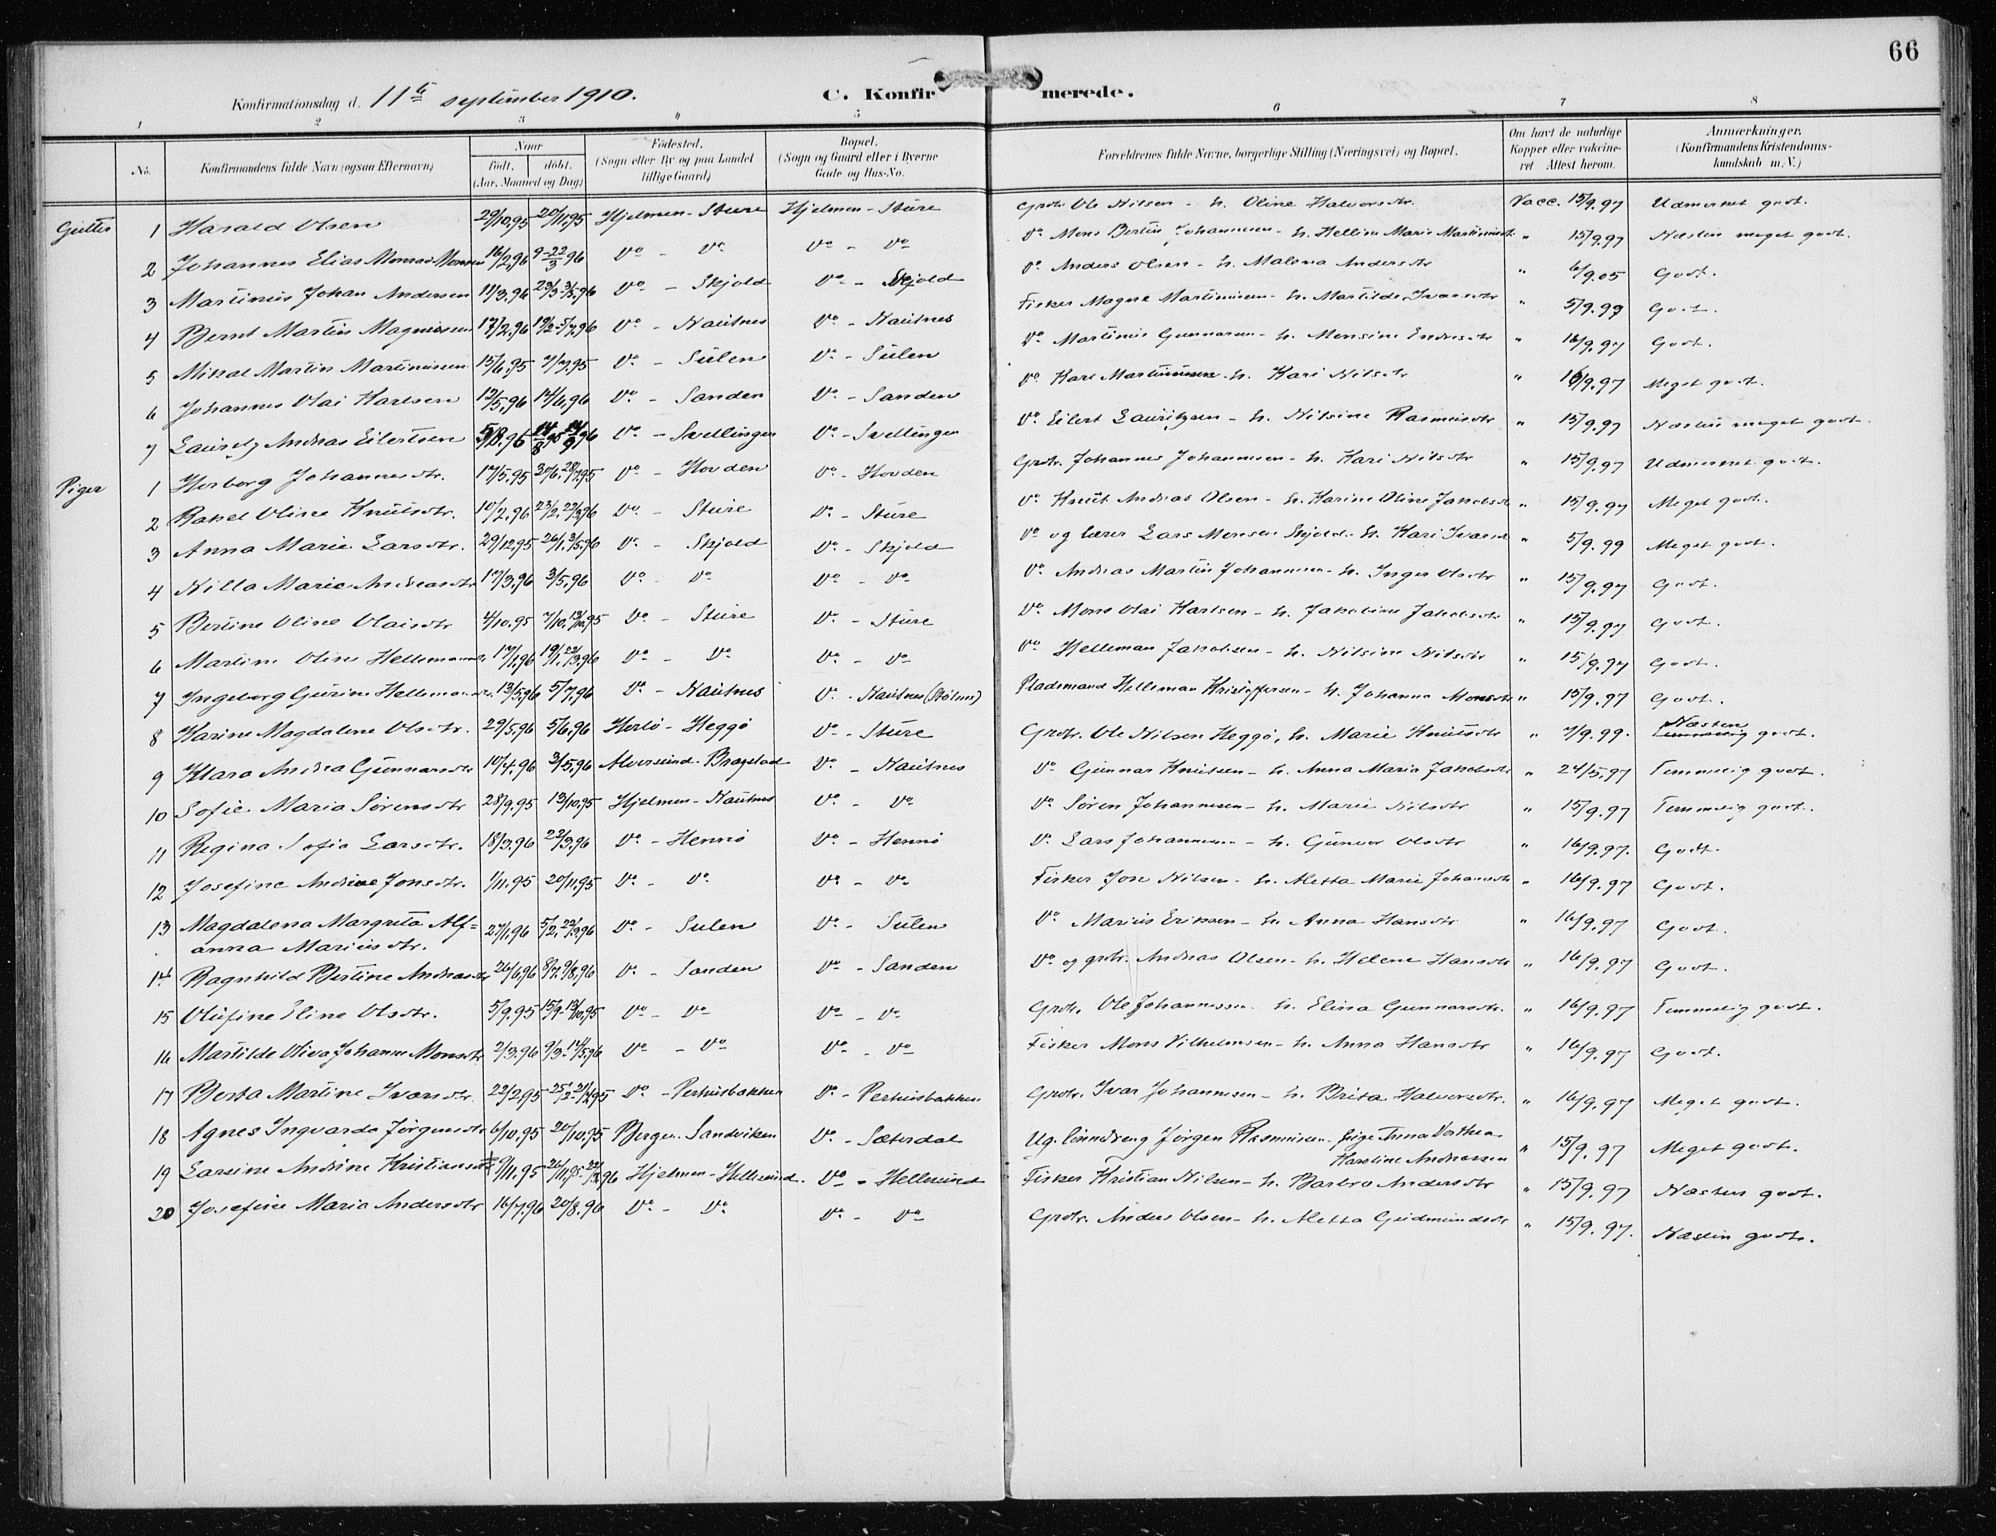 66
Konfirmationsdag d. 11te september 1910.
C. Konfirmerede.
1 2 3 4 5 6 7 8
No. Konfirmandens fulde Navn (ogsaa Efternavn) Naar født. døbt. (Aar, Maaned og Dag) Fødested. (Sogn eller By og paa Landet tillige Gaard) Bopæl. (Sogn og Gaard eller i Byerne Gade og Hus-No. Forældrenes fulde Navne, borgerlige Stilling (Næringsvei) og Bopæl. Om havt de naturlige Kopper eller vakcineret Attest herom. Anmærkninger. (Konfirmandens Kristendomskundskab m. V.)
Gutter 1 Harald Olsen 29/10.95 20/11.95 Hjelmen - Sture Hjelmen - Sture Grdr. Ole Nilsen - h. Oline Halvorsdtr. Vacc. 15/9.97 Udmerket godt.
2 Johannes Elias Monsen 16/2.96 9-22/3 96 Do - Do Do - Do Do Mons Bertin Johannesen - h. Helline Marie Martinusdtr " 15/9.97 Næsten meget godt.
3 Martinius Johan Andersen 11/3.96 23/3-3/5.96 Do - Skjold Do - Skjold Do Anders Olsen - h. Malena Andersdtr " 6/9.05 Godt.
4 Bernt Martin Magnussen 17/2.96 19/2-5/7.96 Do - Nautnes Do - Nautnes Fisker Magne Martinusen - h. Martilde Ivarsdtr " 5/9.99 Godt.
5 Mikal Martin Martinussen 15/6.95 7/7.95 Do - Sulen Do - Sulen Do Martinus Gunnarsen - h. Monsine Endresdtr " 16/9.97 Godt.
6 Johannes Olai Karlsen 12/5.96 14/6.96 Do - Sanden Do - Sanden Do Karl Martinussen - h. Kari Nilsdtr " 16/9.97 Meget godt.
7 Lauritz Andreas Eilertsen 5/8.96 Do - Svellingen Do - Svellingen Do Eilert Lauritzsen - h. Nilsine Rasmusdtr " 15/9.97 Næsten meget godt.
Piger 1 Herborg Johannesdtr. 17/5.95 30/6.28/7.95 Do - Hovden Do - Hovden Grdr. Johannes Johannesen - h. Kari Nilsdtr " 15/9.97 Udmerket godt.
2 Rakel Oline Knutsdtr. 10/2.96 23/2.22/3.96 Do - Sture Do - Sture Do Knut Andreas Olsen - h. Karine Oline Jakobsdtr " 15/9.97 Meget godt.
3 Anna Marie Larsdtr. 29/12.95 26/1.3/5.96 Do - Skjold Do - Skjold Do og lærer Lars Monsen Skjold - h. Kari Ivarsd " 5/9.99 Meget godt.
4 Nilla Marie Andreasdtr 17/3.96 3/5.96 Do - Do Do - Do Do Andreas Martin Johannesen - h. Inger Olsdtr " 15/9.97 Godt.
5 Bertine Oline Olaisdtr 4/10.95 7/10.13/10.95 Do - Sture Do - Sture Do Mons Olai Karlsen - h. Jakobine Jakobsdtr " 15/9.97 Godt.
6 Martine Oline Hellemansdtr. 17/1.96 19/1.22/3.96 Do - Do Do - Do Do Helleman Jakobsen - h. Nilsine Nilsdtr " 15/9.97 Godt.
7 Ingeborg Gurine Hellemansdtr. 13/5.96 5/7.96 Do - Nautnes Do - Nautnes Pladsmand Helleman Kristoffersen - h. Johanna Monsdtr " 15/9.97 Godt.
8 Karine Magdalene Olsdtr. 29/5.96 5/6.96 Herlø - Heggø Do - Sture Grdr. Ole Nilsen Heggø, h. Marie Knutsdtr " 7/9.99. Næsten godt.
9 Klara Andrea Gunnarsdtr 10/4.96 3/5.96 Alversund - Bragstad Do - Nautnes Do Gunnar Knutsen - h. Anna Maria Jakobsdtr " 24/5.97 Temmelig godt.
10 Sofie Maria Sørensdtr 28/9.95 13/10.95 Hjelmen - Nautnes Do - Do Do Søren Johannesen - h. Marie Nilsdtr " 15/9.97 Temmelig godt.
11 Regina Sofia Larsdtr. 18/3.96 22/3.96 Do - Hennø Do - Hennø Do Lars Johannesen - h. Gunvor Olsdtr " 16/9.97. Godt.
12 Josefine Andrine Jonsdtr. 1/11.95 20/11.95 Do - Do Do - Do Fisker Jon Nilsen - h. Aletta Marie Johansdtr " 16/9.97 Godt.
13 Magdalena Margreta Alf=
anna Mariusdtr. 27/1.96 5/2.22/3.96 Do - Sulen Do - Sulen Do Marius Eriksen - h. Anna Hansdtr " 16/9.97 Godt.
14 Ragnhild Bertine Andreasdtr 26/6.96 8/7.9/8.96 Do - Sanden Do - Sanden Do og grdr. Andreas Olsen - h. Helene Hansdtr " 16/9.97 Godt.
15 Olufine Eline Olsdtr. 5/9.95 15/9-13/10.95 Do - Do Do - Do Grdr. Ole Johannessen - h. Elina Gunnarsdtr. " 16/9.97 Temmelig godt.
16 Martilde Oliva Johanne Monsdtr 2/3.96 9/3-14/5.96 Do - Do Do - Do Fisker Mons Vilhelmsen - h. Anna Hansdtr " 16/9.97 Godt.
17 Berta Martine Ivarsdtr. 22/2.95 25/2-21/4.95 Do - Perhusbakken Do - Perhusbakken Grdr. Ivar Johannesen - h. Brita Halvorsdtr. " 16/9.97 Meget godt.
18 Agnes Ingvarda Jørgensdtr 6/10.95 20/10.95 Bergen - Sandviken Do - Sæterdal Ug. tjenestdreng Jørgen Rasmusen - pige Anna Dorthea
Karoline Andreassen " 15/9.97 Meget godt.
19 Larsine Andrine Kristiansdtr 9/11.95 26/11.95-22/3.96 Hjelmen - Hellesund. Do - Hellesund Fisker Kristian Nilsen - h. Barbro Andersdtr " 15/9.97 Næsten godt.
20 Josefine Maria Andersdtr 16/7.96 20/8.96 Do - Do Do - Do Grdr. Anders Olsen - h. Aletta Gudmundsdtr " 15/9.97. Næsten godt.